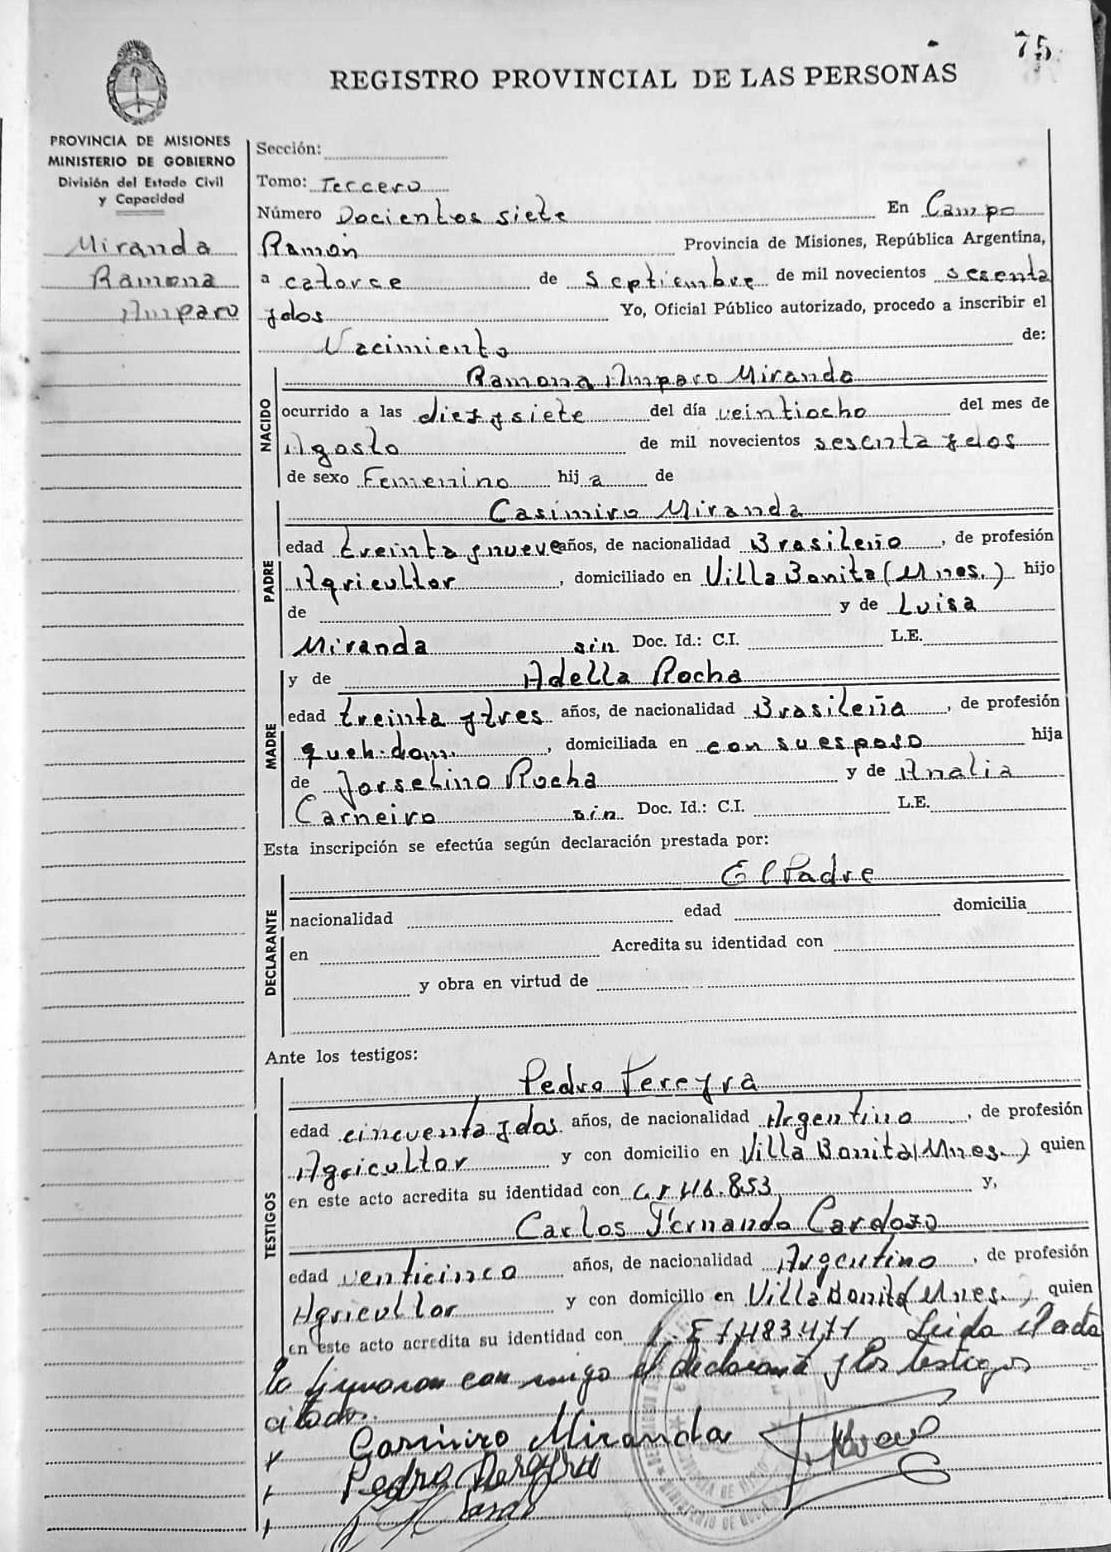 75
REGISTRO PROVINCIAL DE LAS PERSONAS
PROVINCIA DE MISIONES
MINISTERIO DE GOBIERNO
División del Estado Civil
y Capacidad
Miranda
Ramona
Amparo
Sección:
Tomo: Tercero
Número Docientos siete En Campo
Ramón Provincia de Misiones, República Argentina,
a catorce de Septiembre de mil novecientos sesenta
y dos Yo, Oficial Público autorizado, procedo a inscribir el
Nacimiento de:
NACIDO
Ramona Amparo Miranda
ocurrido a las diez y siete del día veintiocho del mes de
Agosto de mil novecientos sesenta y dos
de sexo Femenino hij a de
PADRE
Casimiro Miranda
edad treinta y nueve años, de nacionalidad Brasileño, de profesión
Agricultor, domiciliado en Villa Bonita (Mnes.) hijo
de y de Luisa
Miranda sin Doc. Id.: C.I. L.E.
MADRE
y de Adella Rocha
edad treinta y tres años, de nacionalidad Brasileña, de profesión
queh. dom., domiciliada en con su esposo hija
de Jorselino Rocha y de Analia
Carneiro sin Doc. Id.: C.I. L.E.
Esta inscripción se efectúa según declaración prestada por:
DECLARANTE
El Padre
nacionalidad edad domicilia
en Acredita su identidad con
y obra en virtud de
Ante los testigos:
TESTIGOS
Pedro Pereyra
edad cincuenta y dos años, de nacionalidad Argentino, de profesión
Agricultor y con domicilio en Villa Bonita (Mnes.) quien
en este acto acredita su identidad con 116.853 y,
Carlos Fernando Cardozo
edad venticinco años, de nacionalidad Argentino, de profesión
Agricultor y con domicilio en Villa Bonita (Mnes.) quien
en este acto acredita su identidad con L.E 7.483.471 Leida el acta
la firmaron con migo el declarante y los testigos
citados.
Casimiro Miranda
Pedro Pereyra